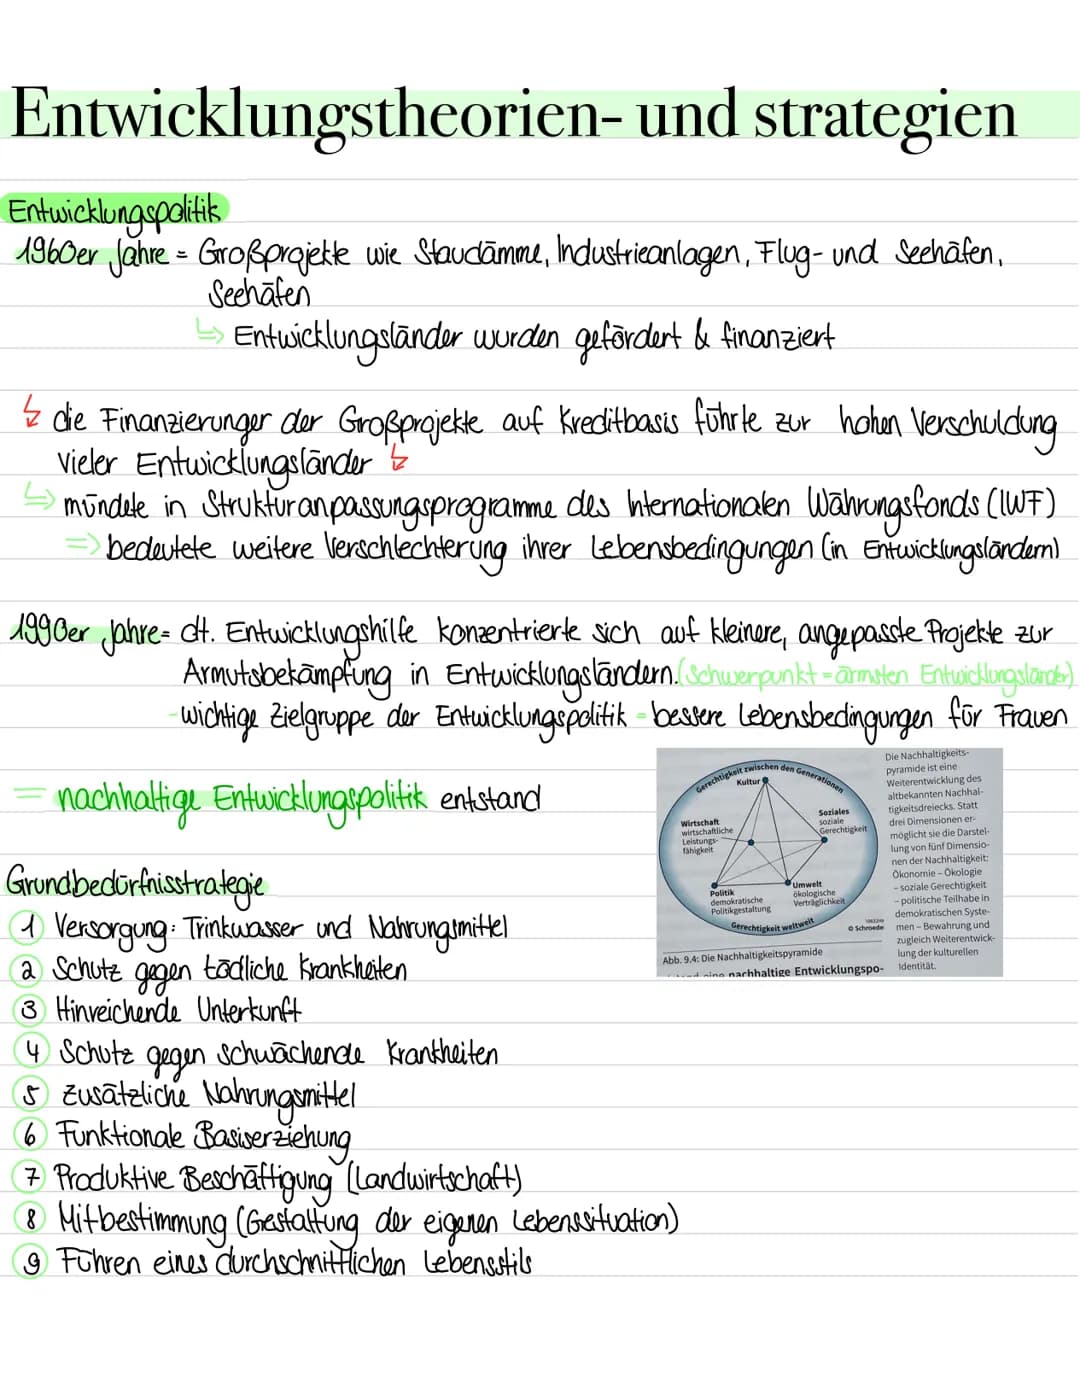 Entwicklungstheorien- und strategien
Entwicklungspolitik
1960er Jahre = Großprojekte wie Staudämme, Industrieanlagen, Flug- und Seehäfen,
Seehäfen
↳ Entwicklungsländer wurden gefördert & finanziert
↯ die Finanzierunger der Großprojekte auf Kreditbasis führte zur hohen Verschuldung
vieler Entwicklungsländer ↯
↳ mündete in Strukturanpassungsprogramme des Internationalen Währungsfonds (IWF)
=> bedeutete weitere Verschlechterung ihrer Lebensbedingungen (in Entwicklungsländern)
1990er Jahre = dt. Entwicklungshilfe konzentrierte sich auf kleinere, angepasste Projekte zur
Armutsbekämpfung in Entwicklungsländern. (Schwerpunkt = ärmsten Entwicklungsländer)
- wichtige Zielgruppe der Entwicklungspolitik = bessere Lebensbedingungen für Frauen
= nachhaltige Entwicklungspolitik entstand
Gerechtigkeit zwischen den Generationen
Kultur
Wirtschaft
wirtschaftliche
Leistungs-
fähigkeit
Soziales
soziale
Gerechtigkeit
Politik
demokratische
Politikgestaltung
Umwelt
ökologische
Verträglichkeit
Gerechtigkeit weltweit
© Schroedel
Abb. 9.4: Die Nachhaltigkeitspyramide
eine nachhaltige Entwicklungspo-
Die Nachhaltigkeits-
pyramide ist eine
Weiterentwicklung des
altbekannten Nachhal-
tigkeitsdreiecks. Statt
drei Dimensionen er-
möglicht sie die Darstel-
lung von fünf Dimensio-
nen der Nachhaltigkeit:
Ökonomie – Ökologie
– soziale Gerechtigkeit
– politische Teilhabe in
demokratischen Syste-
men – Bewahrung und
zugleich Weiterentwick-
lung der kulturellen
Identität.
Grundbedürfnisstrategie
1 Versorgung: Trinkwasser und Nahrungsmittel
2 Schutz gegen tödliche Krankheiten
3 Hinreichende Unterkunft
4 Schutz gegen schwächende Krankheiten
5 Zusätzliche Nahrungsmittel
6 Funktionale Basiserziehung
7 Produktive Beschäftigung (Landwirtschaft)
8 Mitbestimmung (Gestaltung der eigenen Lebenssituation)
9 Führen eines durchschnittlichen Lebensstils